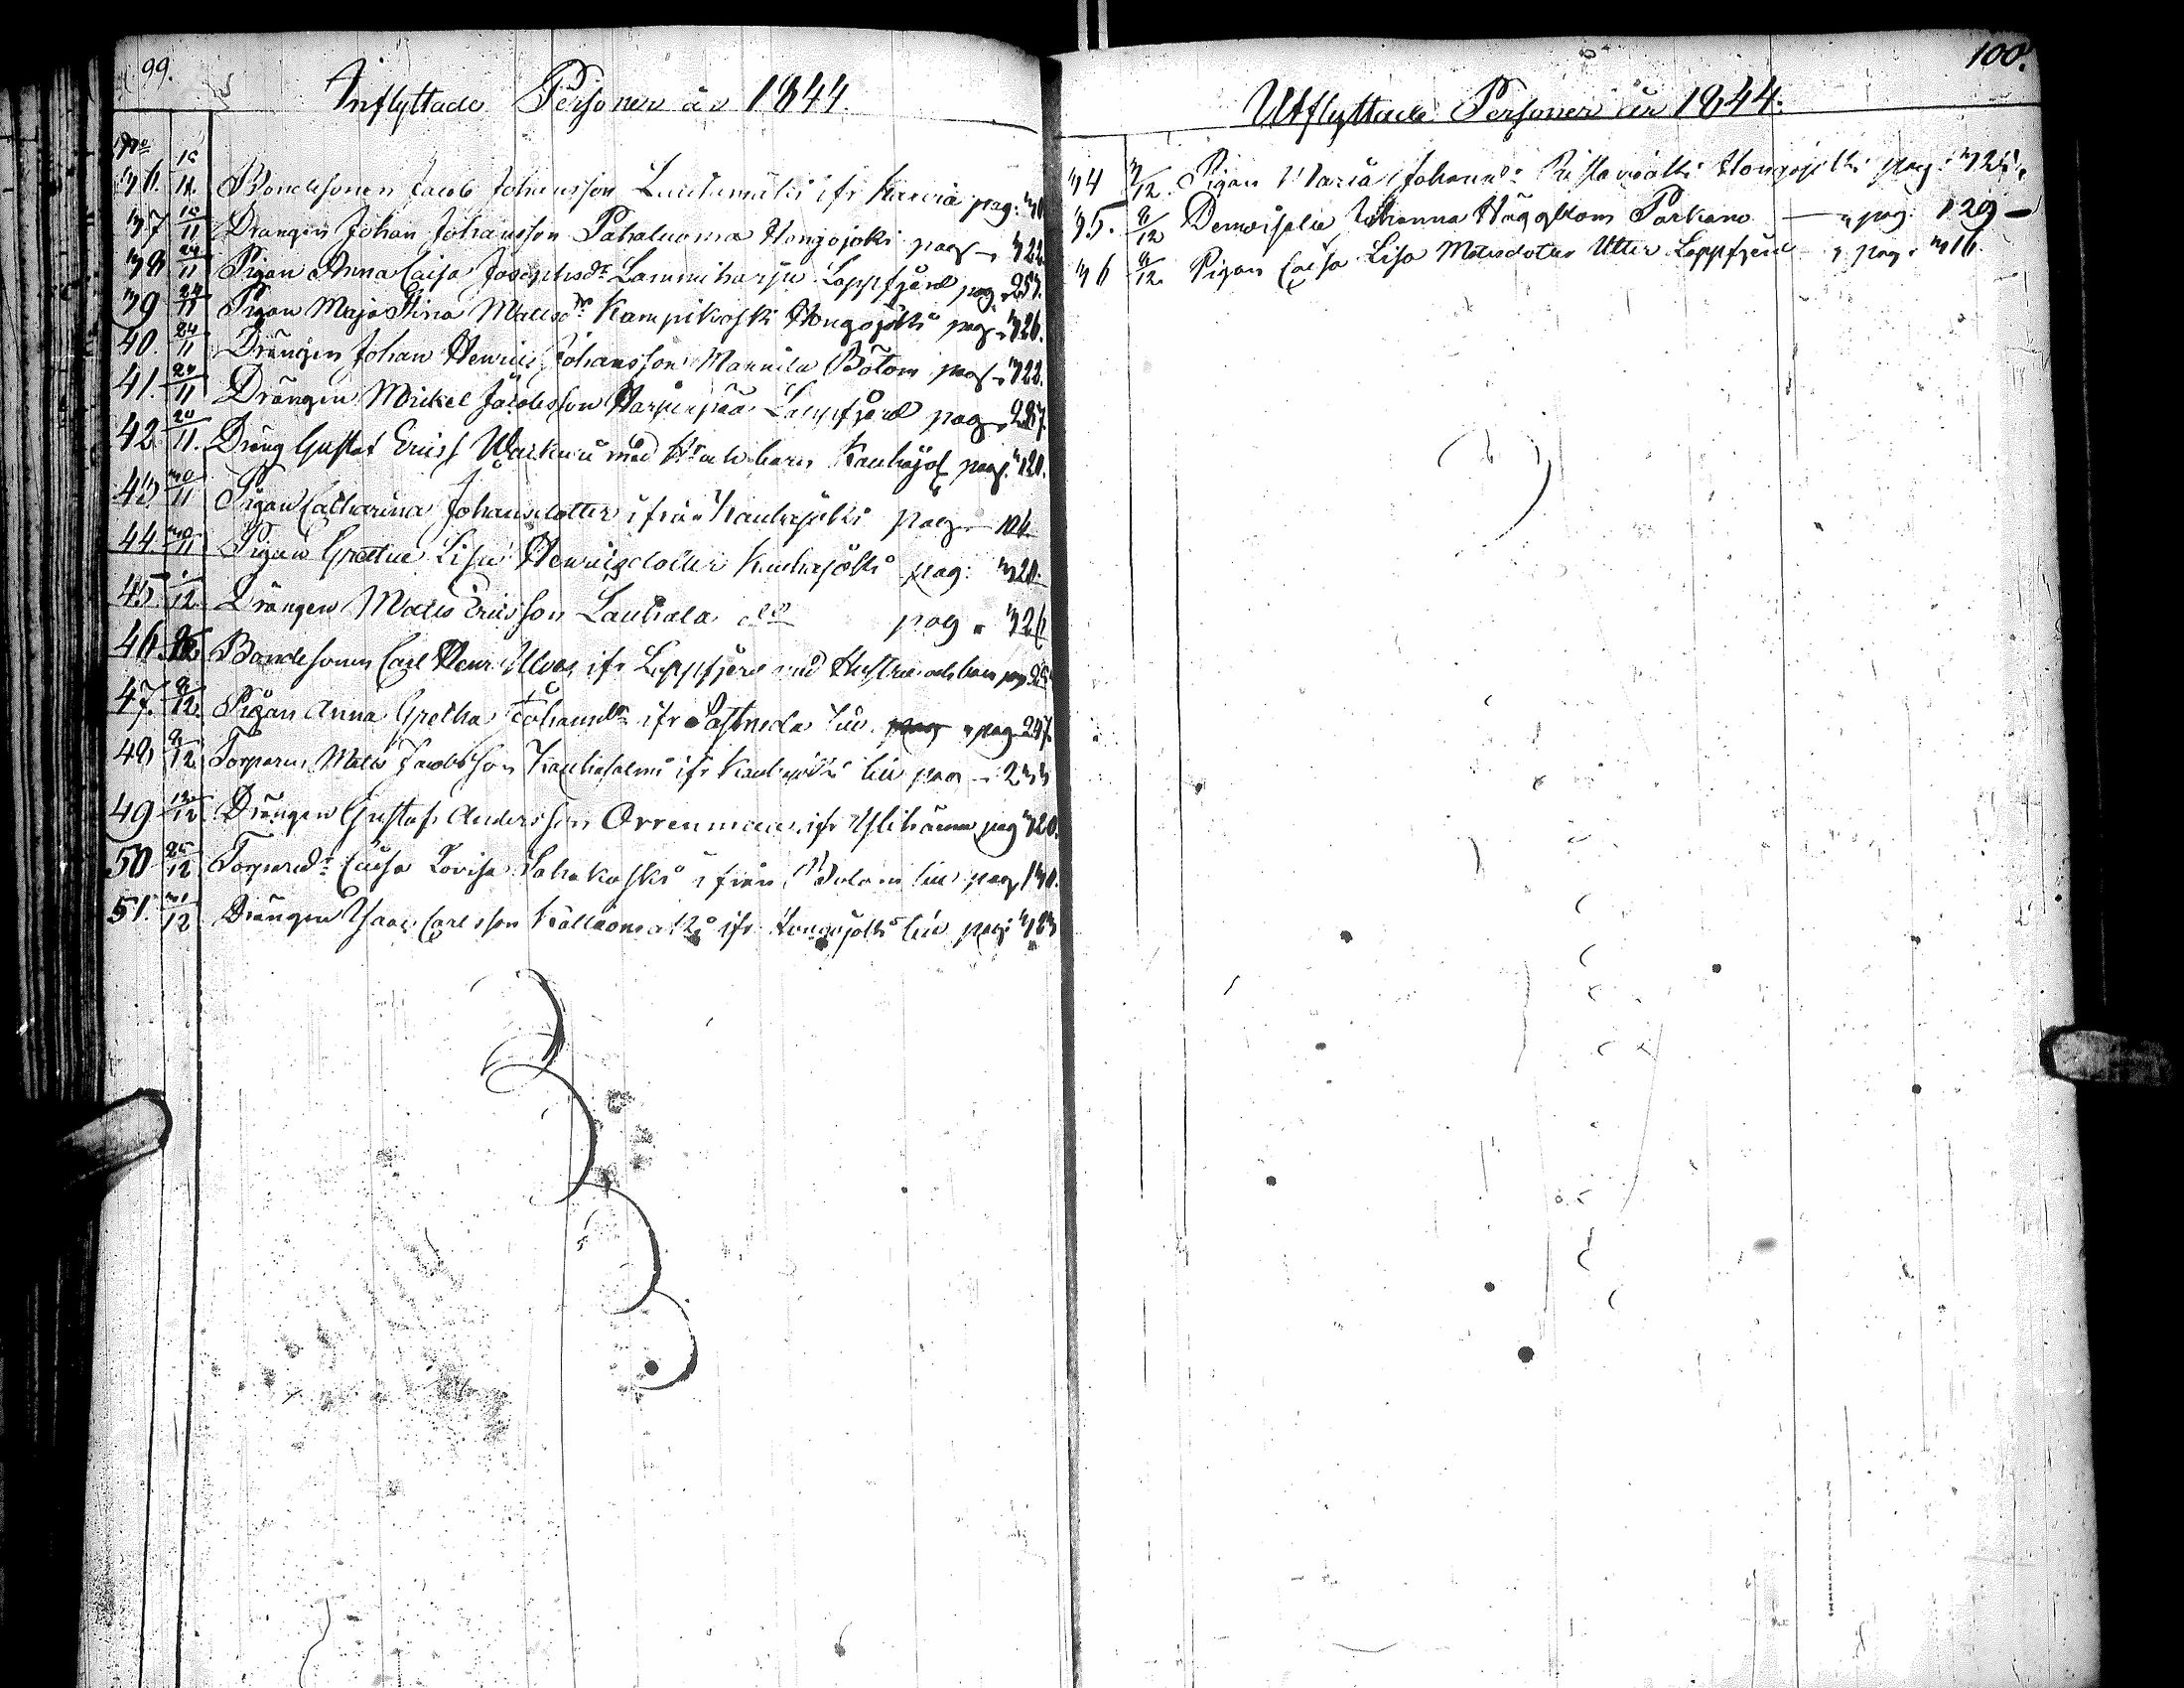 99.
Inflyttade Personer år 1844.
No
36. 10/11. Bondesonen Jacob Johansson ifr Karvia pag:
37 10/11 Drängen Johan Johansson Pahaluoma Hongojoki pag 322
38 24/11 Pigan Anna Caisa Josephsdr Lamminharju Lappfjerd pag 257.
39 24/11 Pigan Maja Stina Matsdr Kampikoski Hongojoki pag 326.
40. 24/11 Drängen Johan Henric Johansson Mannila Bötom pag 322.
41. 24/11 Drängen Mickel Jacobsson Harjunpää Lappfjerd pag 287.
42 20/11. Dräng Gustaf Ericss med Hu o barn Kauhajok pag. 121.
43. 30/11 Pigan Catharina Johansdotter ifrån Kauhajoki pag 104
44 30/11 Pigan Gretha Lisa Henricsdotter Kauhajoki pag: 321.
45. 1/12 Drängen Matts Ericsson Lauhala do pag 326
46 Bondesonen Carl Henr ifr Lappfjerd med Hustru och barn pag
47. 8/12. Pigan Anna Gretha Johansdr ifr Sastmola pag 247.
48 8/12 Torparen Matts Jacobsson ifr Kauhajoki pag 233
49 12 Drängen Gustaf Andersson Orrenmaa ifr Ylihärmä pag 320.
50 25/12 Torparedr Caisa Lovisa Sahakoski ifrån pag 131.
51. 31/12 Drängen Isaac Carlsson ifr Hongojoki pag 323
100.
Utflyttade Personer år 1844.
34 12. Pigan Maria Johansdr Hongojoki pag: 325.
35. 8/12 Demoiselle Johanna Häggblom Parkano — pag: 129 —
36 8/12. Pigan Caisa Lisa Matsdotter Utter Lappfjerd pag. 316.